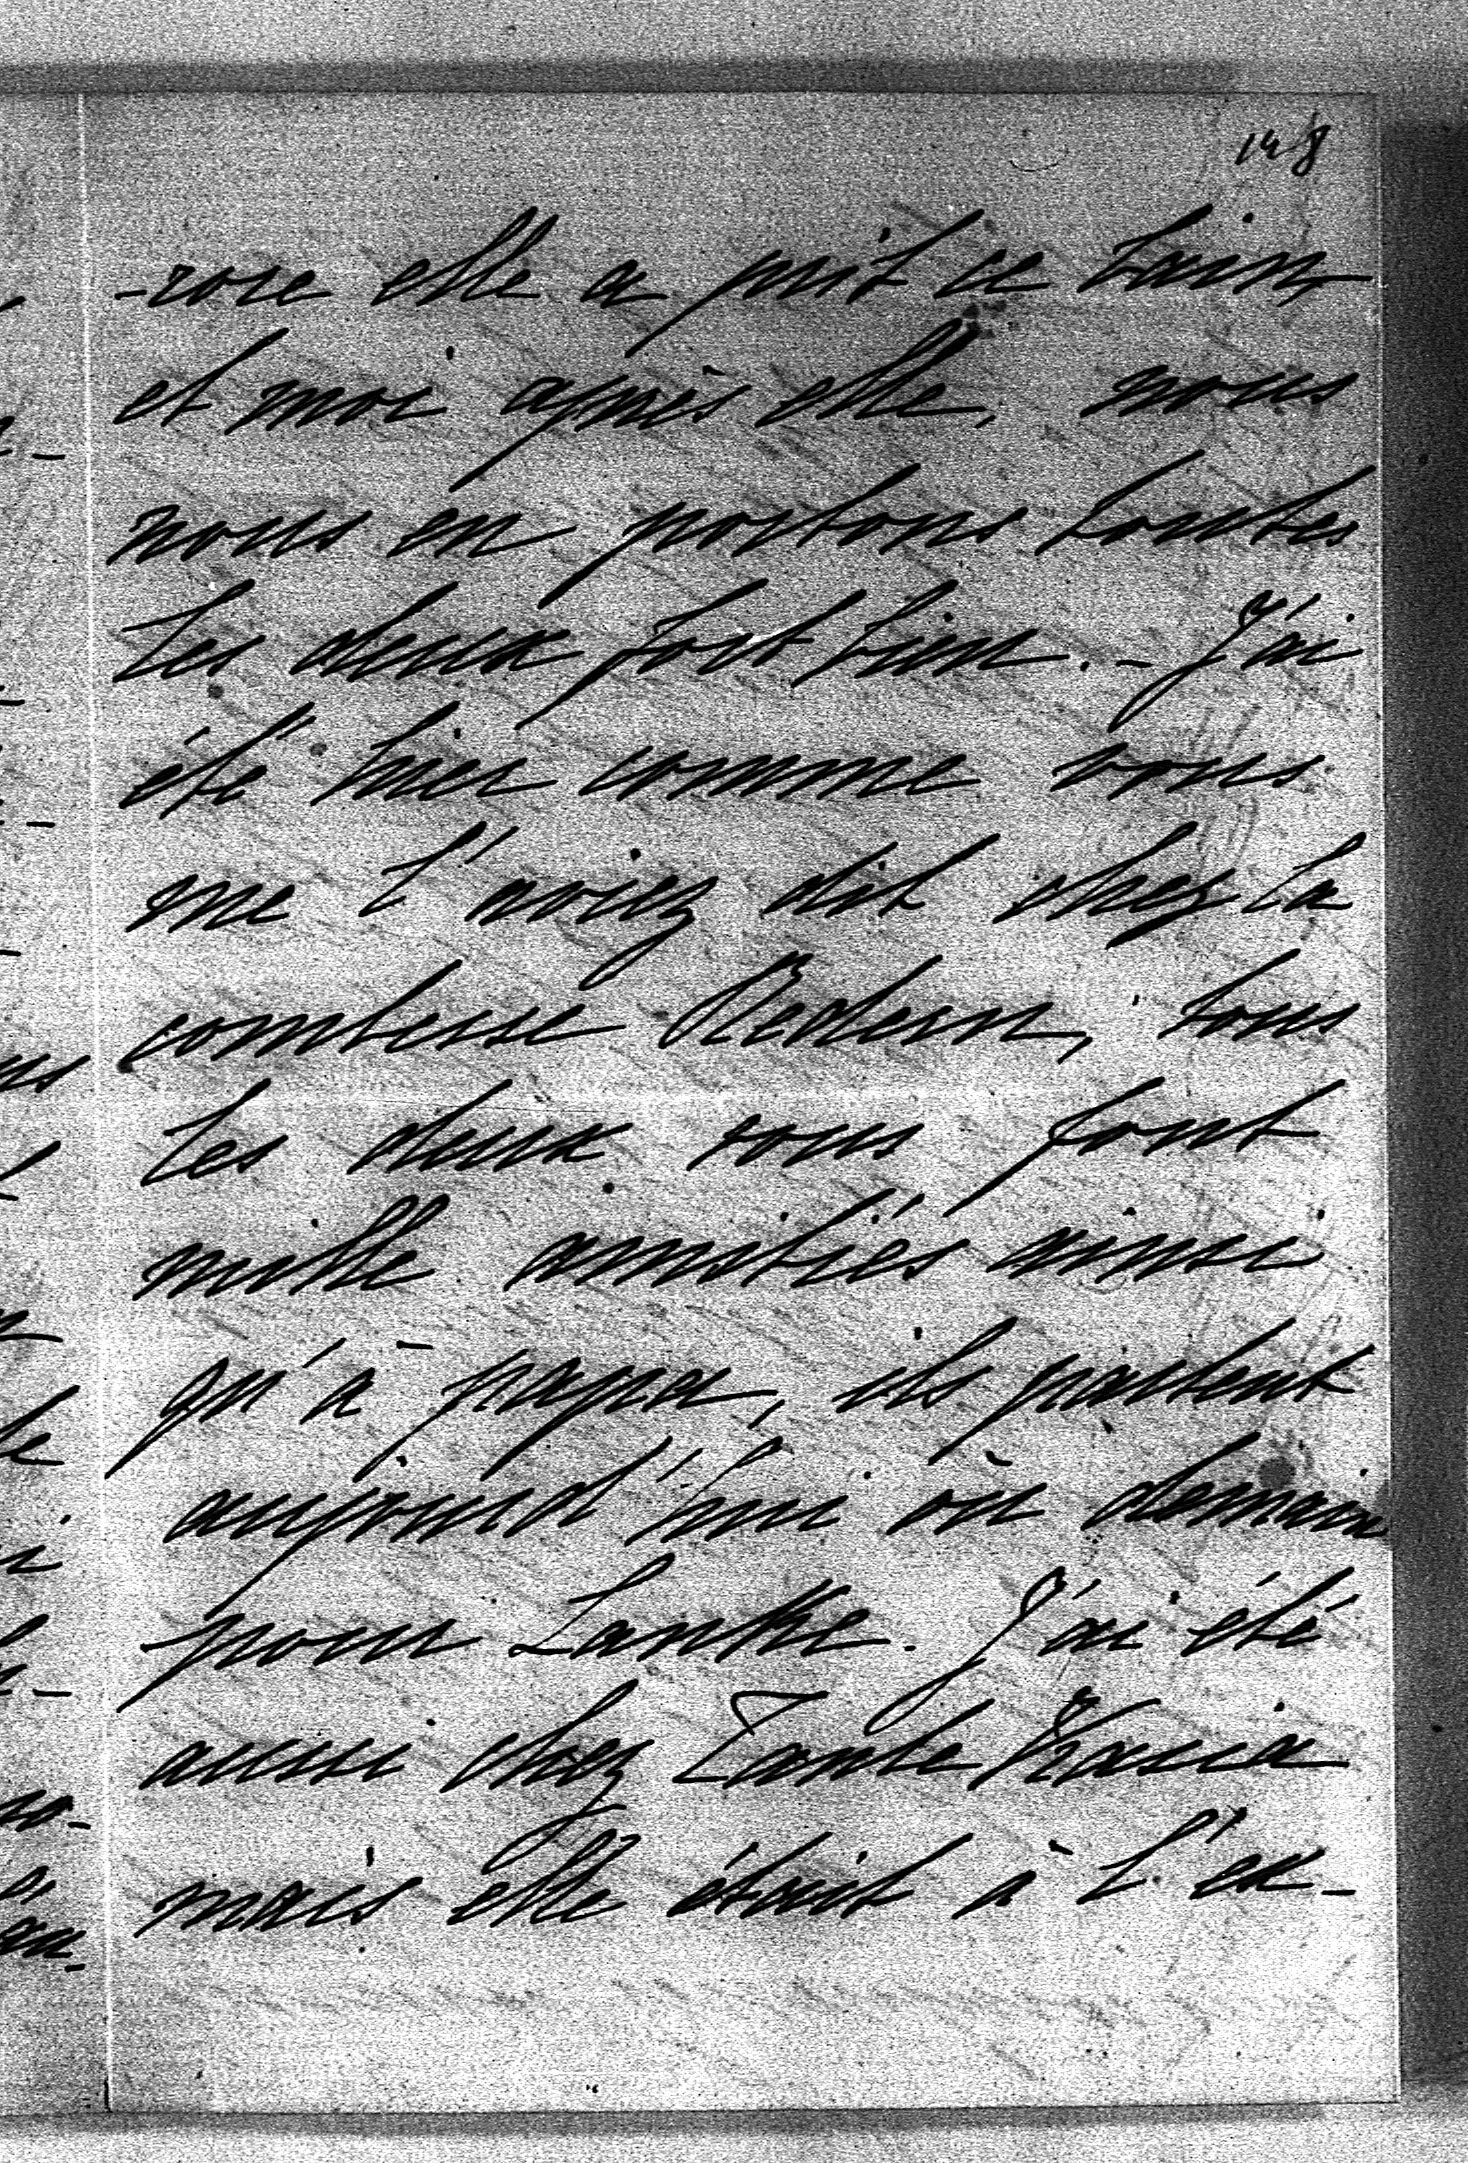 148
-rore elle a prit ce bain
et moi après elle, nous
nous en portons toutes
les deux fort bien. - J'ai
été hier comme vous
me l'aviez dit chez la
comtesse Redern, tous
les deux vous font
mille amitiés ainsi
qu'à papa, ils partent
aujourd'hui où demain
pour Lanke. J'ai été
aussi chez Tante Krasia
mais elle était à l'ex-